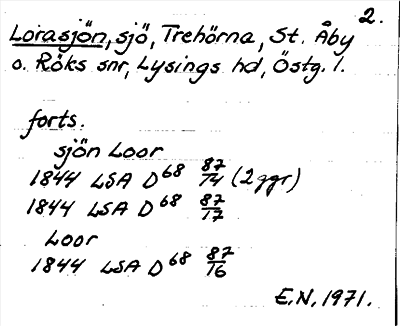 2.
Lorasjön, sjö, Trehörna, St. Åby
o. Röks snr, Lysings hd, Östg. l.
forts.
sjön Loor
1844 LSA D68 87/14 (2 ggr)
1844 LSA D68 87/17
Loor
1844 LSA D68 87/16
E.N. 1971.